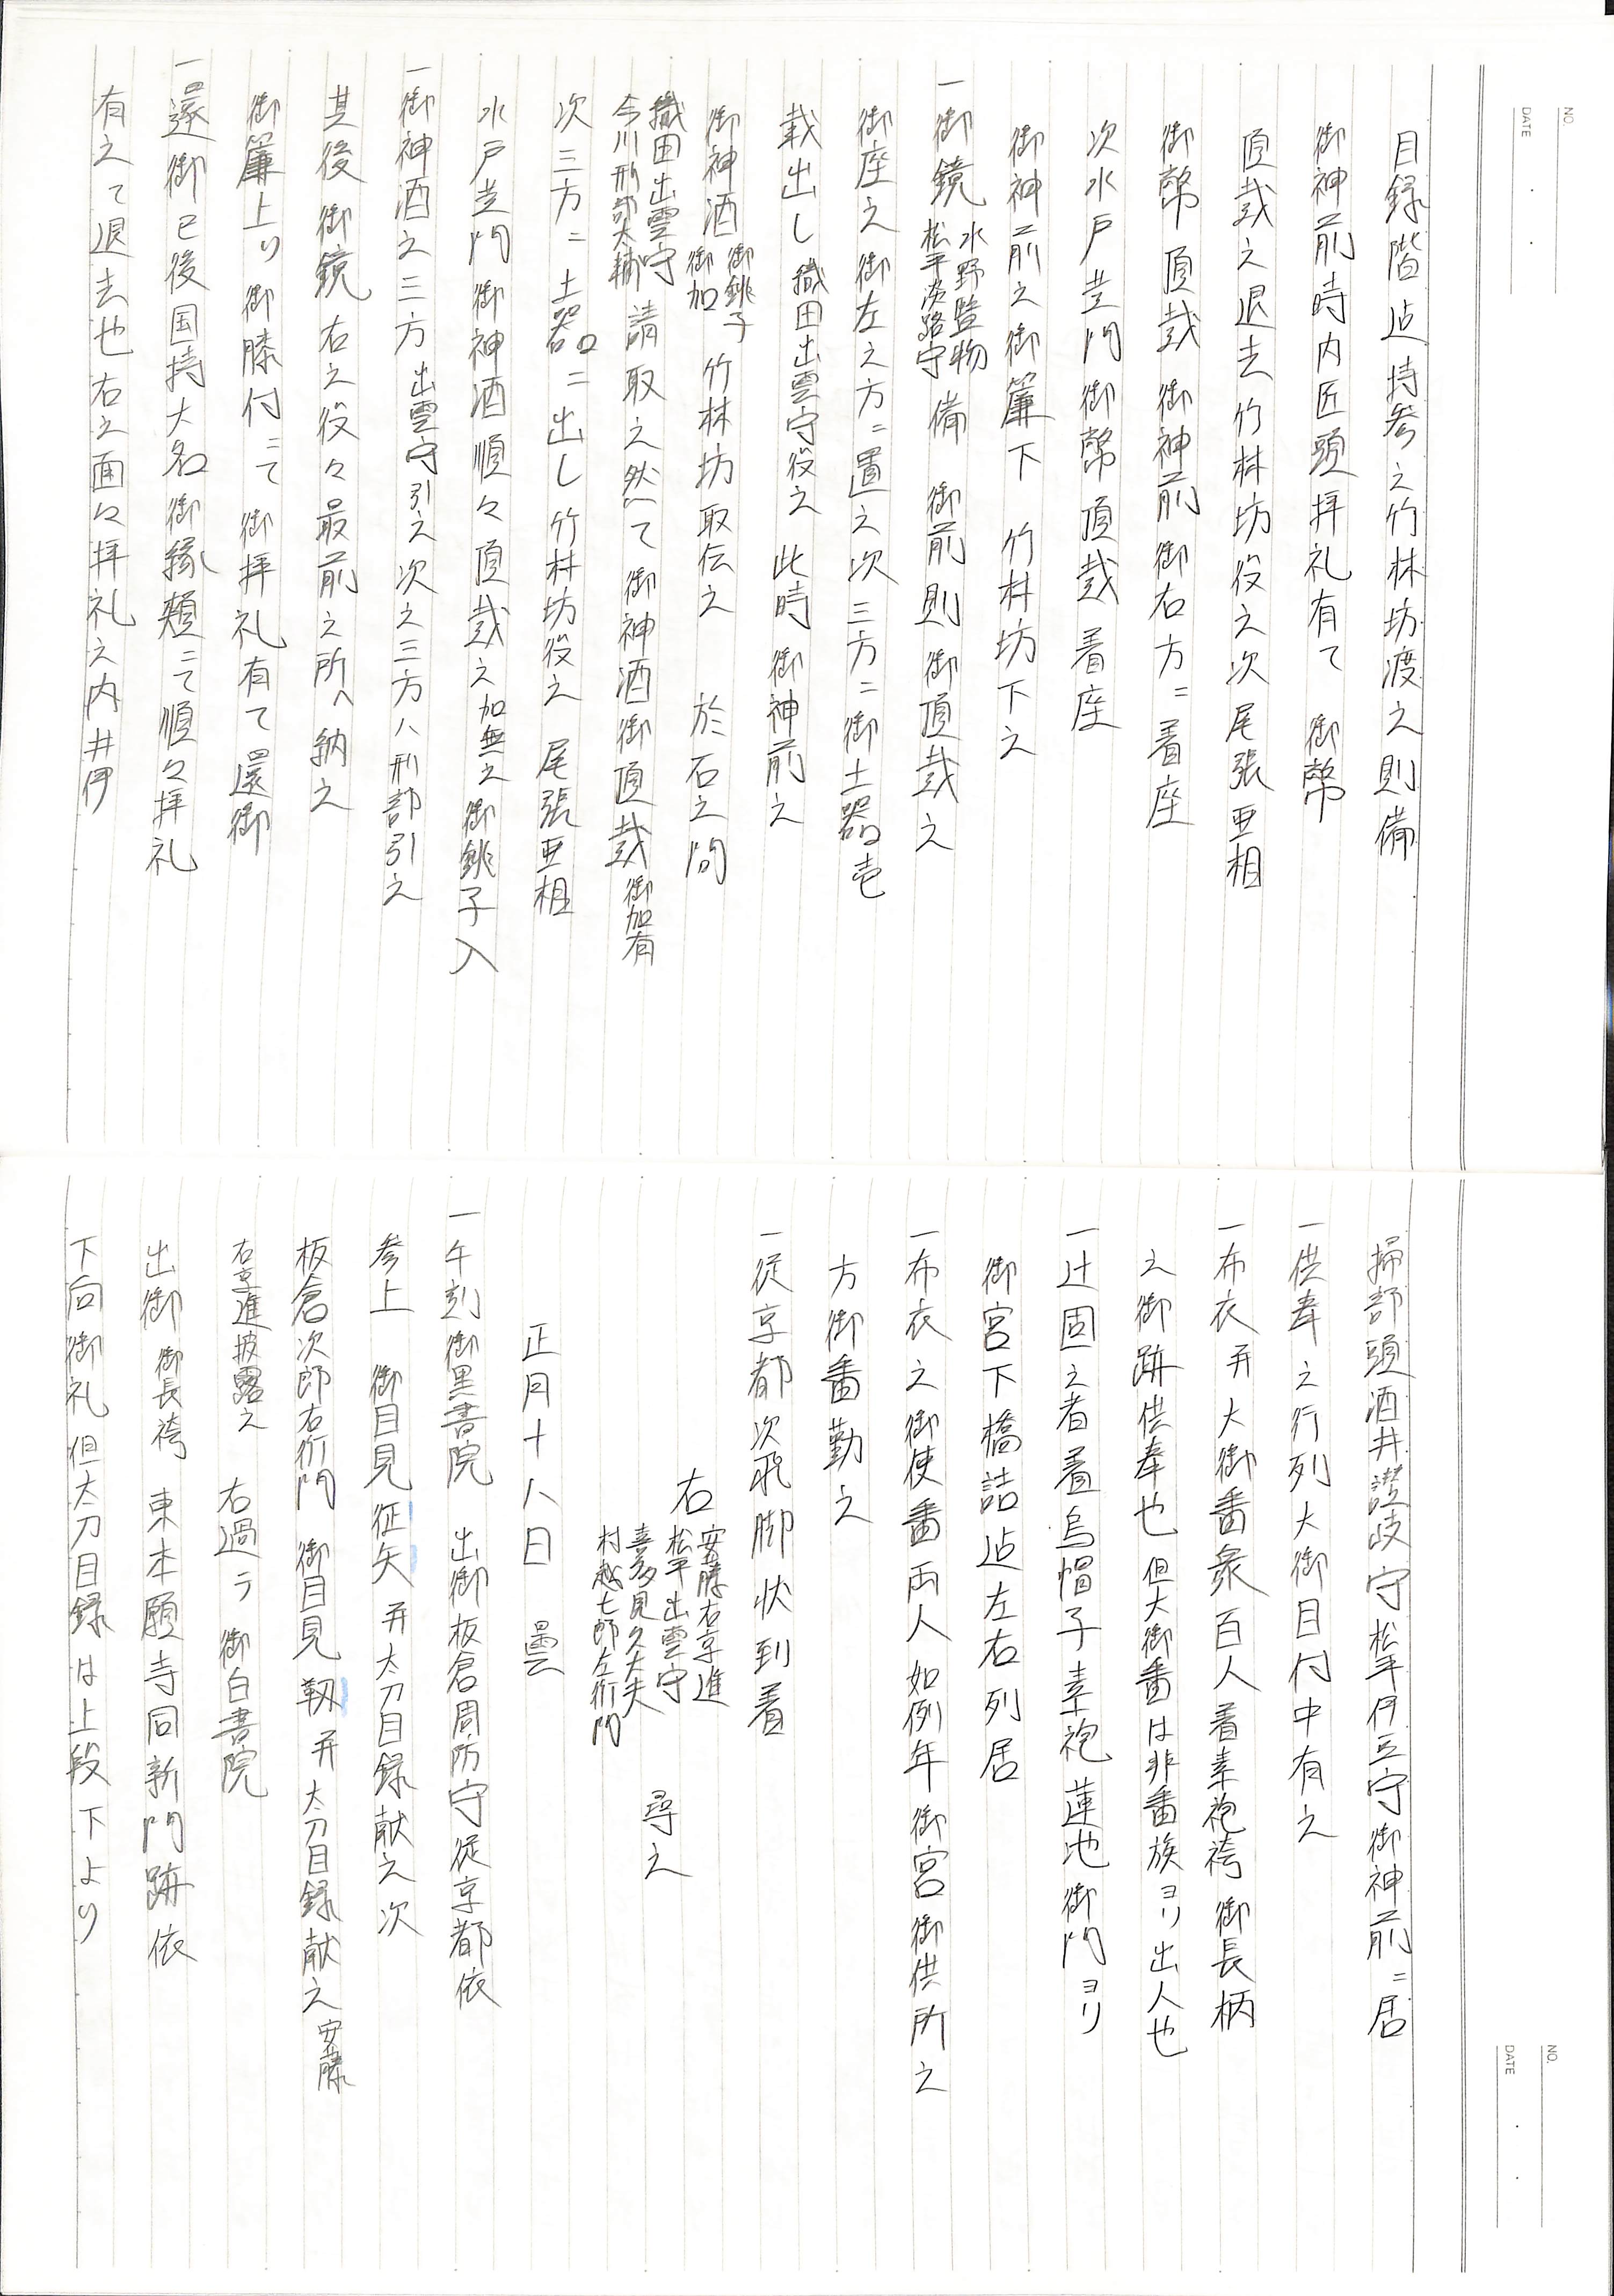 NO.
DATE
目録階迠持参之竹林坊渡之則備
御神前時内匠頭拝礼有て 御幣
頂戴之退去竹林坊役之次尾張亜相
御幣頂戴 御神前御右方ニ着座
次水戸黄門御幣頂戴 着座
御神前之御簾下 竹林坊下之
一御鏡 水野監物 松平淡路守 備 御前則御頂戴之
御座之御左之方ニ置之次三方ニ御土器壱
載出し織田出雲守役之 此時御神前之
御神酒 御銚子 御加 竹林坊取伝之 於石之間
織田出雲守 今川刑部太輔 請取之然て御神酒御頂戴 御加有
次三方ニ土器ニ出し竹林坊役之 尾張亜相
水戸黄門御神酒順々頂戴之 加無之 御銚子入
一御神酒之三方 出雲守引之 次之三方ハ刑部引之
其後御鏡右之役々最前之所へ納之
御簾上り御膝付ニて御拝礼有て還御
一還御已後国持大名御縁頬ニて順々拝礼
有之て退去也右之面々拝礼之内井伊
NO.
DATE
掃部頭酒井讃岐守松平伊豆守御神前ニ居
一供奉之行列大御目付中有之
一布衣并大御番衆百人着素袍袴御長柄
之御跡供奉也 但大御番は非番族ヨリ出人也
一辻固之者着烏帽子素袍蓮池御門ヨリ
御宮下橋詰迠左右列居
一布衣之御使番両人如例年御宮御供所之
方御番勤之
一従京都次飛脚状到着
右 安藤右京進 松平出雲守 喜多見久大夫 村越七郎左衛門 尋之
正月十八日 曇
一午刻御黒書院 出御板倉周防守従京都依
参上 御目見征矢并太刀目録献之次
板倉次郎右衛門 御目見靱并太刀目録献之 安藤
右京進披露之 右過テ御白書院
出御 御長袴 東本願寺同新門跡依
下向御礼但太刀目録は上段下より